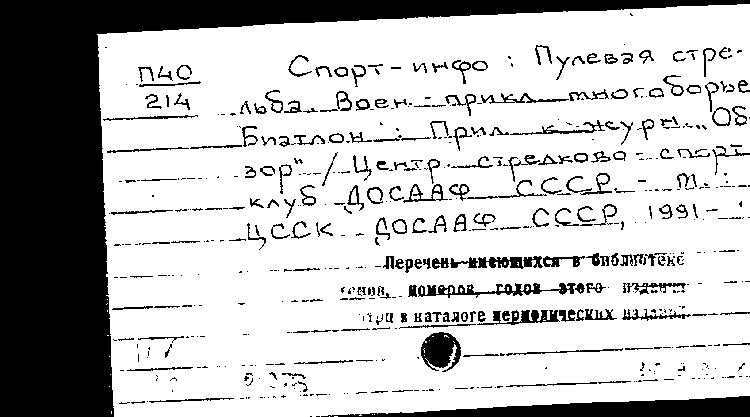 П40
214
Спорт-инфо : Пулевая стре-
льба. Воен.-прикл. многоборье
Биатлон : Прил. к журн. „Об-
зор" / Центр. стрелково-спорт
клуб ДОСААФ СССР. - М. :
ЦССК ДОСААФ СССР, 1991-
Перечень имеющихся в библиотеке
номеров, годов этого издания
в каталоге периодических изданий